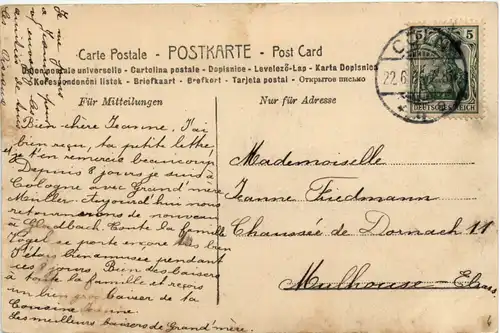 Carte Postale - POSTKARTE - Post Card
Union postale universelle - Cartolina postale - Dopisnice - Levelező-Lap - Karta Dopisnica
Korespondenční listek - Briefkaart - Brefkort - Tarjeta postal - Открытое письмо
Für Mitteilungen
Nur für Adresse
5 5
DEUTSCHES REICH
22.6.
Bien chère Jeanne, J'ai
bien reçu, ta petite lettre,
et je t'en remercie beaucoup.
Depuis 8 jours je suis à
Cologne avec Grand'mère
Müller. Aujourd'hui nous
retournerons de nouveau
à Gladbach. Toute la famille
Vogel se porte encore très bien
J'étais bien amusée pendant
ces 8 jours. Bien des baisers
à toute la famille et reçois
un bien gros baiser de ta
Cousine
Les meilleurs baisers de Grand'mère.
Mademoiselle
Jeanne Friedmann
Chaussée de Dornach 11
Mulhouse-Elsass